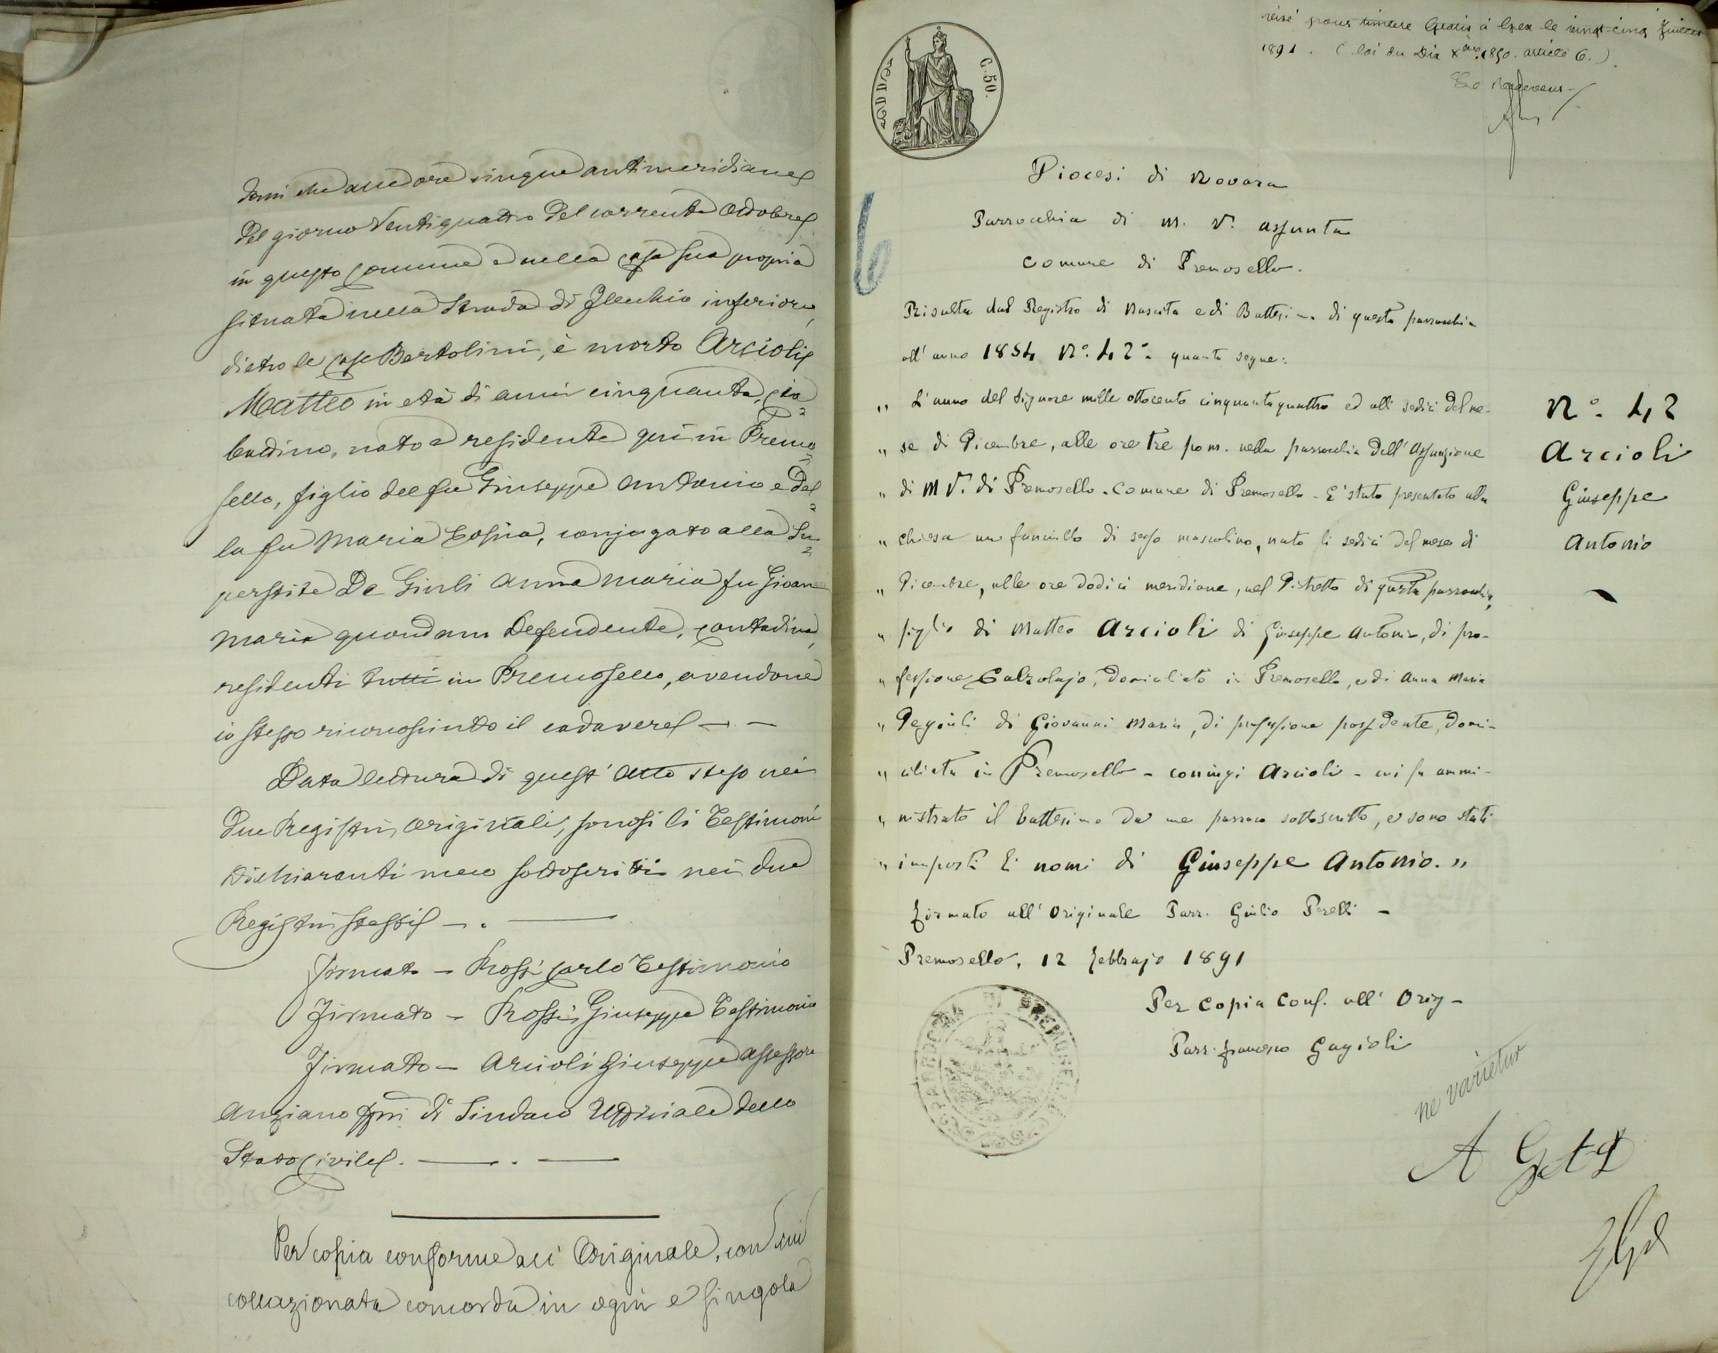 che alle ore cinque antimeridiane
del giorno Ventiquattro del corrente Ottobre
in questo Comune e nella casa sua propria
situata nella Strada di inferiore,
dietro le case Bertolini, è morto Arcioli
Matteo in età di anni cinquanta, con=
tadino, nato e residente qui in Premo=
sello, figlio del fu Giuseppe Antonio e del=
la fu Maria conjugato alla Su=
perstite De Giuli Anna Maria fu Gioan
Maria quondam Defendente, contadina,
residenti tutti in Premosello, avendone
io stesso riconosciuto il cadavere — . —
Data lettura di quest' atto steso nei
due Registri originali, sonosi li Testimoni
Dichiaranti meco sottoscritti nei due
Registri stessi — . —
firmato — Rossi Carlo Testimonio
Firmato — Rossi Giuseppe Testimonio
Firmato — Arcioli Giuseppe Assessore
Anziano ff.ni di Sindaco Uffiziale dello
Stato Civile. — . —
Per copia conforme all' Originale, con cui
collazionata concorda in ogni e singola
visé pour timbre Gratis à Gex le vingt-cinq
1891. (loi du Dix Xbre 1850. article 6.)
C. 50.
6
Diocesi di Novara
Parrocchia di M. V. Assunta
Comune di Premosello.
Risulta dal Registro di Nascita e di Battesimo di questa parrocchia
all' anno 1854 No. 42. quanto segue:
„ L'anno del Signore mille ottocento cinquantaquattro ed alli sedici del me-
„ se di Dicembre, alle ore tre pom. nella parrocchia dell' Assunzione
„ di M V. di Premosello. Comune di Premosello. E' stato presentato alla
„ chiesa un fanciullo di sesso mascolino, nato li sedici del mese di
„ Dicembre, alle ore dodici meridiane, nel Distretto di questa parrocchia,
„ figlio di Matteo Arcioli di Giuseppe Antonio, di pro-
„ fessione Calzolajo, domiciliato in Premosello, e di Anna Maria
„ Degiuli di Giovanni Maria, di professione possidente, domi-
„ ciliata in Premosello - conjugi Arcioli - cui fu ammi-
„ nistrato il battesimo da me parroco sottoscritto, e sono stati
„ imposti li nomi di Giuseppe Antonio. „
Firmato all' Originale Parr. Giulio Perelli -
Premosello, 12 Febbrajo 1891
Per copia conf. all' Orig-
Parr. Francesco Gagioli
No. 42
Arcioli
Giuseppe
Antonio
PARROCCHIA DI PREMOSELLO
ne varietur